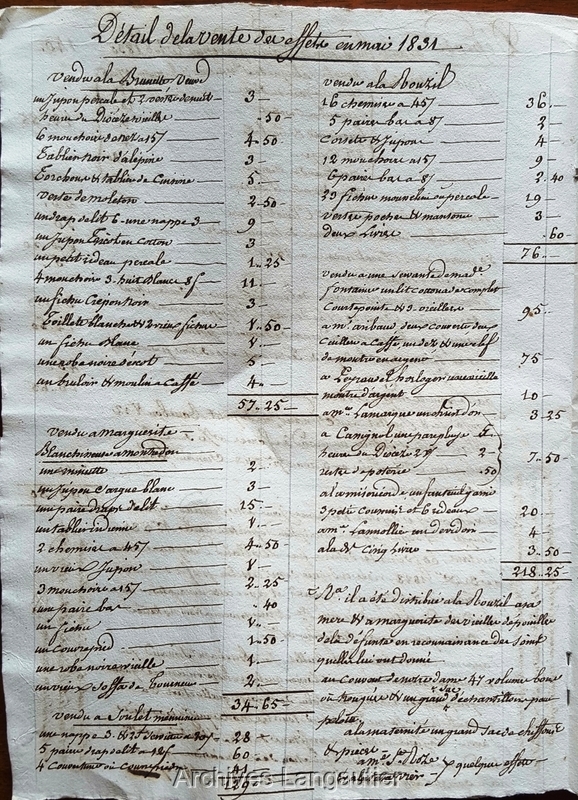 Détail de la vente des effets en mai 1831
vendu a la Brunette Veuve
un Jupon percale et 2 vestes de nuit 3
heures du Diocèze vieille 50
6 mouchoirs de nez a 15 4 50
Tablier noir d'alépine 3
Torchons et tabliers de Cuisine 5
veste de moleton 2 50
un drap de lit 6 - une nappe 3 9
un Jupon Tricot en cotton 3
un petit rideau percale 1 25
4 mouchoirs 3 huit blanc 11
un fichu Crepon noir 3
Toillete blanche et 2 vieux fichus 1 50
un fichu blanc 1
une robe noire d'écot 5
un bruloir et moulin a caffé 4
57 25
vendu a marguerite
Blanchisseuse a montredon
une minette 2
un Jupon Sarque blanc 3
une paire draps de lit 15
un tablier indienne 1
2 chemises a 45 4 50
un vieux Jupon 1
3 mouchoirs a 15 2 25
une paire bas 40
un fichu 1
un Couvrepied 1 50
une robe noire vieille 1
un vieux soffa de Tourneur 2
34 65
vendu a Soulet menuisier
une nappe 3 28
5 paires draps de lit a 12 60
4 Couvertures ou Couvrepieds 41
129
vendu a la Rouzil
16 chemises a 45 36
5 paires bas a 8 2
Corsets et Jupons 4
12 mouchoirs a 15 9
6 paires bas a 8 2 40
29 fichus mousseline ou percale 19
vestes poches et 3
deux Livres 60
76
vendu a une servante de made
fontaine un lit cottonade complet
Courtepointe et 3 oreillers 95
a mr aribaud deux couverts deux
cuillers a Caffé, un dez et une clef
de montre en argent 75
a Legrand horloger une vieille
montre d'argent 10
a mr Lamarque un chiridon 3 25
a Canignol une parapluye 5
heures du Diocèze 2 7 50
reste de poterie 50
a la misericorde un fauteuil garni
3 petits coussins et 6 rideaux 20
a mr Lannollier un devidoir 4
a la Ve cinq Livres 3 50
218 25
Na il a été distribué a la Rouzil a sa
mere et a marguerite des vieille depouille
de la défunte en reconnaissance des soins
quelle lui ont donné
au Couvent de notre dame 47 volumes bons
ou Rongués et un grand sac d'échantillons pour
pelote
a la maternité un grand sac de chiffons
et pieces
a mr St Roze quelques effets
Archives Langautier